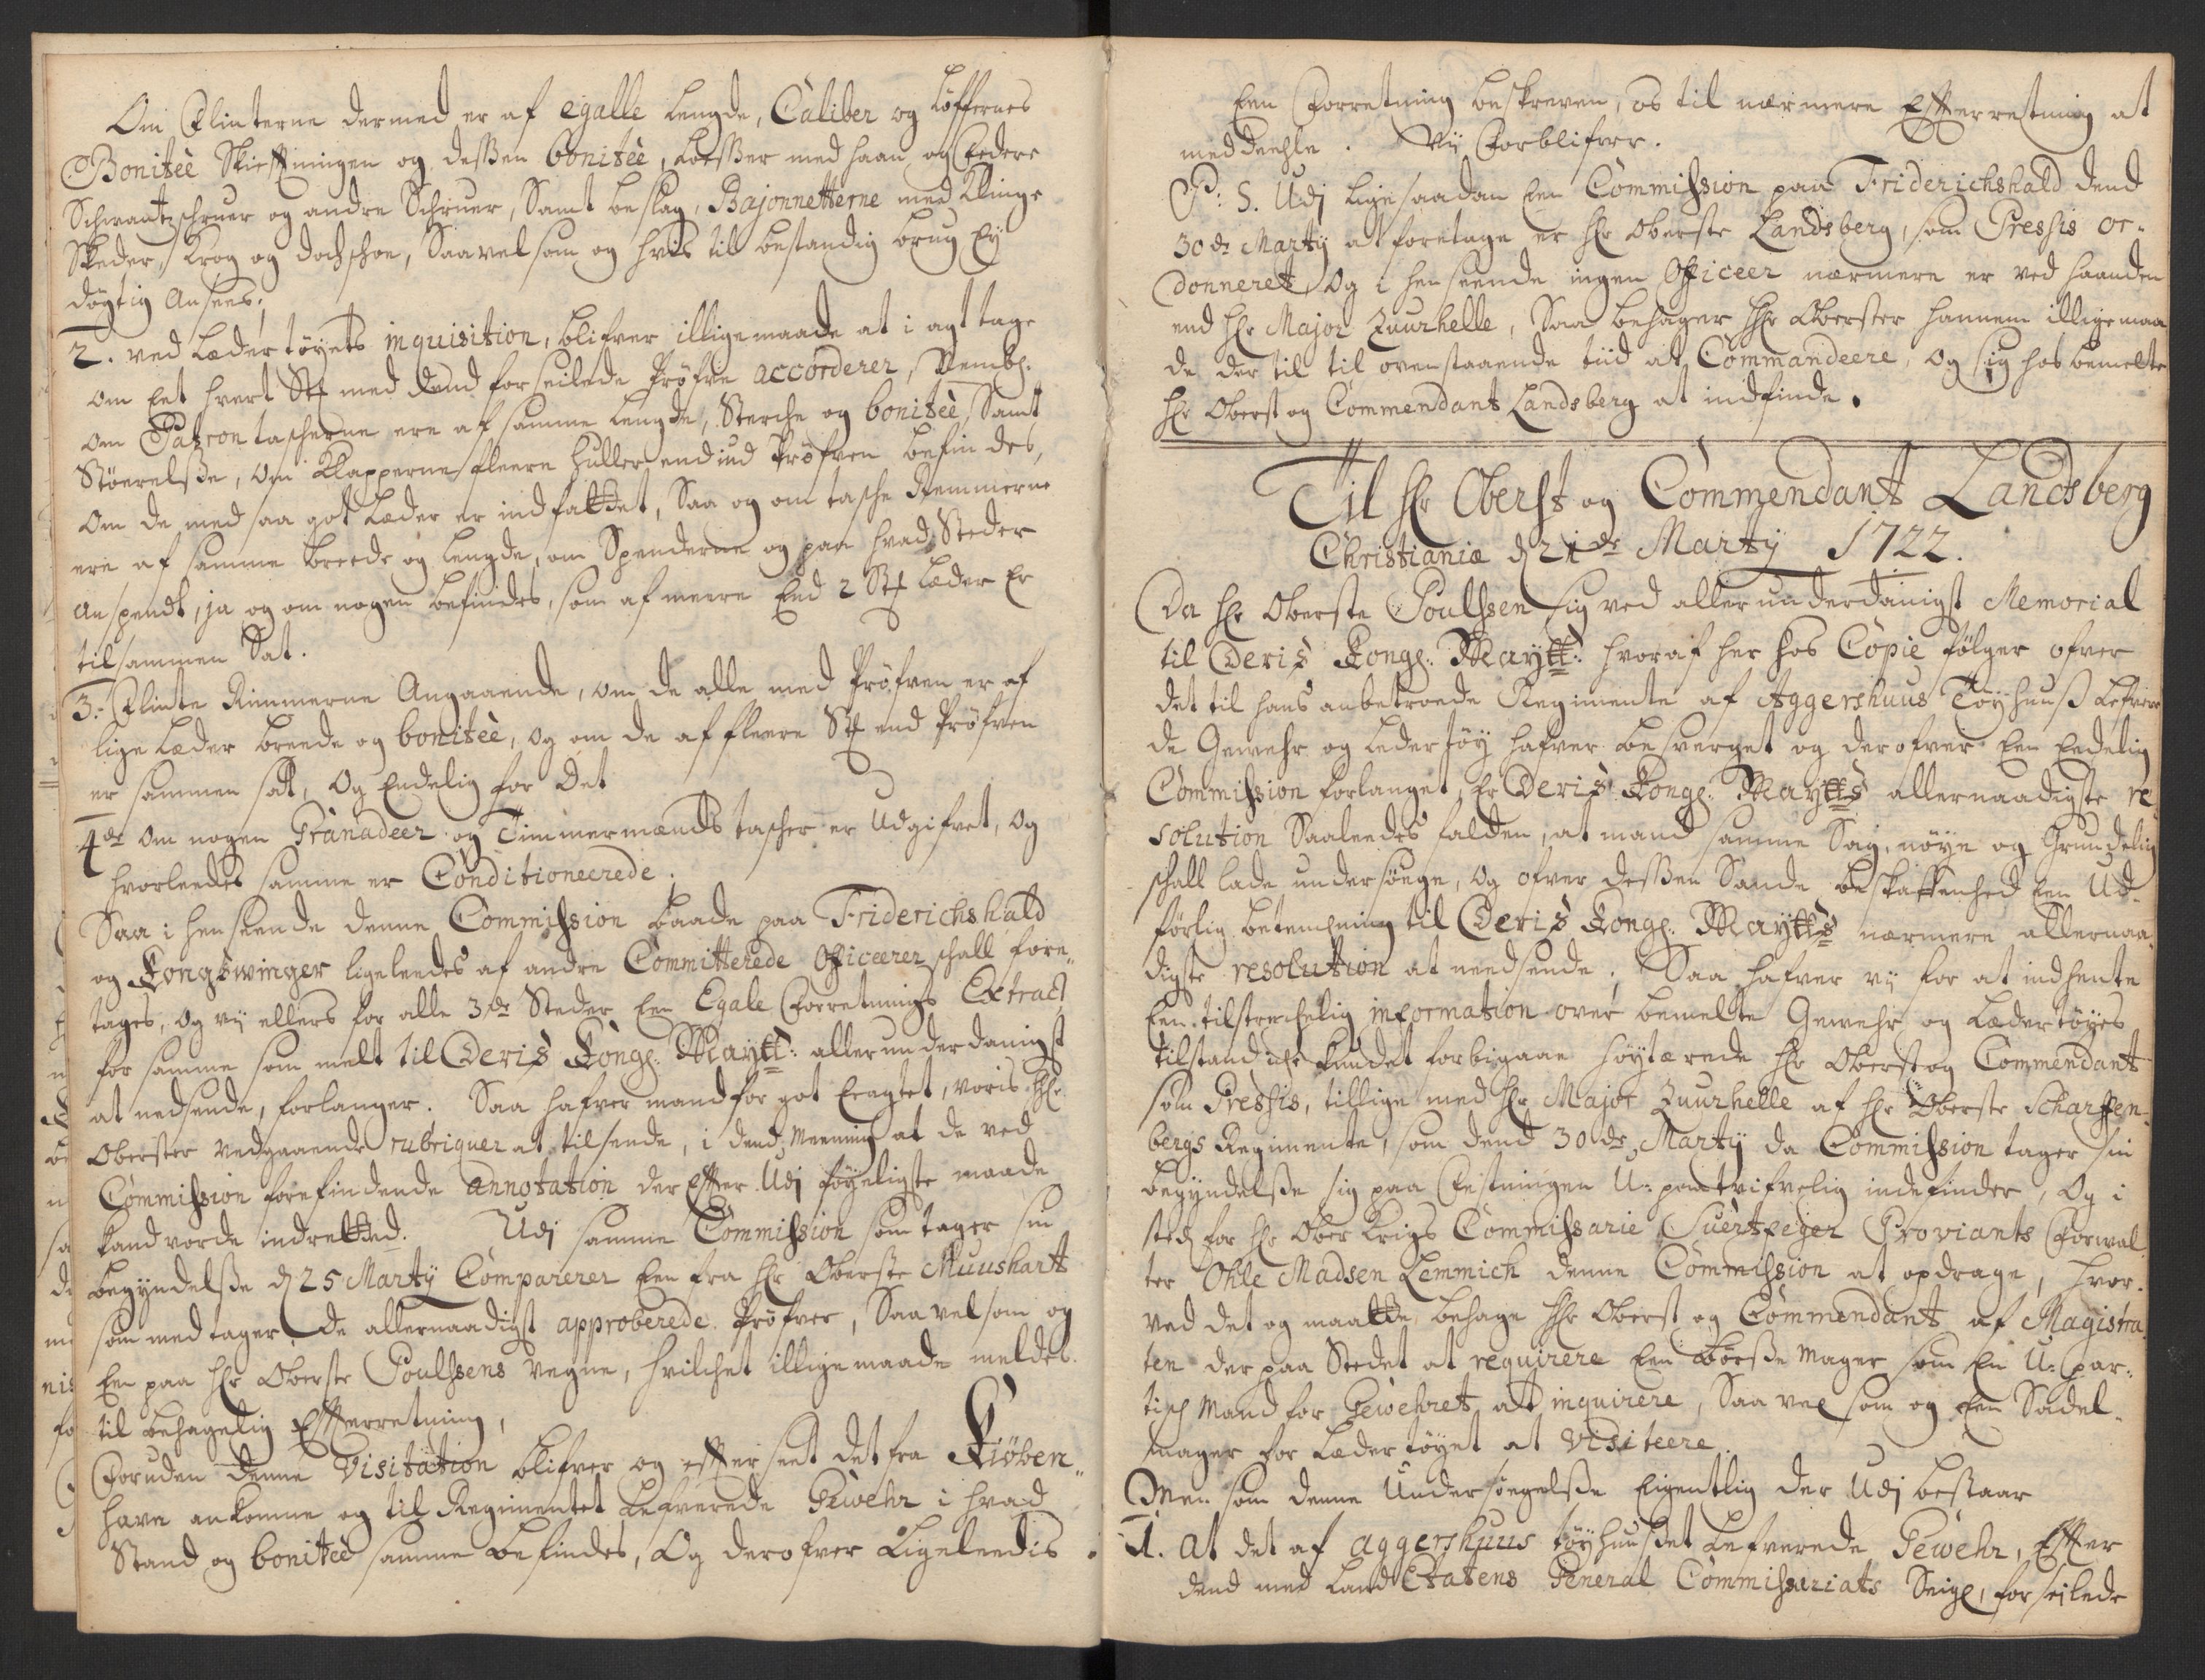 Om Flinterne dermed er af egalle Lengde, Caliber og Løffternes
Boniteè Skieftningen og deßen boniteè, Laaßer med haan og Federe
Schwantzschruer og andre Schruer, Samt beslag, Bajonnetterne med Klinge
Skeder, krog og dochschoe, Saavelsom og hvis til bestandig brug Ey
døgtig Ansees;
2. ved Læder tøyets inquisition, blifver illigemaade at i agt tage
om Eet hvert St: med dend forseilede Prøfve accorderer, Nembl:
om Patron tascherne ere af samme Lengde, Sterche og boniteè, Samt
Størrelsse, Om Klapperne fleere huller end ind Prøfven befindes,
Om de med saa got Læder er indfattet, Saa og om tasche Remmerne
ere af samme breede og Lengde, om Spenderne og paa hvad Steder
Anspendt, ja og om nogen befindes, som af meere End 2 St: Læder Er
tilsammen Sat.
3. Flinte Remmerne Angaaende, om de alle med Prøfven er af
lige Læder breede og boniteè, og om de af fleere St: end Prøfven
er sammen satt, Og Endelig for det
4de Om nogen Granadeer og Timmermands tascher er Udgifvet, og
hvorleedes samme er Conditioneerede;
Saa i henseende denne Commission baade paa Friderichshald
og Kongswinger ligeleedes af andre Committerede Officeerer schall fore„
tages, Og vij ellers for alle 3de Steder Een Egale Forretnings Extract
for samme som melt til Deris Kongl: Maytt: allerunderdanigst
at nedsende, forlanger. Saa hafver mand for got Eragtet, voris hhr
Oberster vedgaaende rubriquer at tilsende, i dend Meening at de ved
Commission forefindende annotation der Efter Udj føyeligste maade
kand vorde indrettet. Udj samme Commission som tager sin
begyndelße d 25 Martij Comparerer Een fra hr Oberste Muushart
som med tager de allernaadigst approberede Prøfver, Saavelsom og
Een paa hr Oberste Poulssens vegne, hvilchet illigemaade meldes
til behagelig Efterretning,
Foruden denne Visitation blifver og efterseet det fra Kiøben„
havn ankomne og til Regimentet Lefverede Gewehr i hvad
Stand og boniteè samme befindes, Og derofver Ligeleedis
Een Forretning beskreven, os til nærmere Efterretning at
meddeehle. Vij Forblifver.
P: S. Udj lige saadan Een Commission paa Friderichshald dend
30de Martij at foretage er hr Oberste Landsberg, som Pressis or„
donneret, Og i henseende ingen Officeer nærmere er ved haanden
end hr Major Zuurhelle, Saa behager hhr Oberster hannem illigemaa
de der til til ovenstaaende tiid at Commandeere, og sig hos bemelte
hr Oberst og Commendant Landsberg at indfinde.
Til hr Oberst og Commendant Landsberg
Christiania d 21de Martij 1722.
Da hr Oberste Poulssen sig ved allerunderdanigst Memorial
til Deris Kongl: Maytt: hvoraf her hos Copie følger ofver
det til hans anbetroede Regimente af Aggershuus Tøyhuuß Lefvere
de Gewehr og Leder tøy hafver besverget og derofver Een Eedelig
Commission forlanget, Er Deris Kongl: Maytts allernaadigste re
solution Saaleedes falden, at mand samme Sag, nøye og Grundelig
schall lade undersøuge, og ofver deßen Sande beskaffenhed Een Ud„
førlig betenchning til Deris Kongl: Maytts nærmere allernaa
digste resolution at needsende; Saa hafver vij for at indhente
Een tilstrechelig information over bemelte Gewehr og Lædertøyes
tilstand iche kundet forbigaae høytærede hr Oberst og Commendant
som Pressis, tillige med hr Major Zuurhelle af hr Oberste Scharffen„
bergs Regimente, som dend 30de Martij da Commission tager sin
begyndelße sig paa Festningen U: paatvifvelig indfinder, Og i
sted for hr Ober Krigs Commissarie Suertfeger Proviants Forwal
ter Ohle Madsen Lemmich denne Commission at opdrage, hvor„
ved det og maatte behage hhr Oberst og Commendant af Magistra
ten der paa Stedet at requirere Een Bøeße Mager som En U: par„
tisch Mand for Gewehret at inquirere, Saa vel som og Een Sadel„
mager for Lædertøyet at visiteere.
Men som denne Undersøegelße Eigentlig der Udj bestaar
1. At det af Aggershuus tøyhuußet Lefverede Gewehr, Efter
dend med Land Etatens General Commissariats Seigl, forseilede